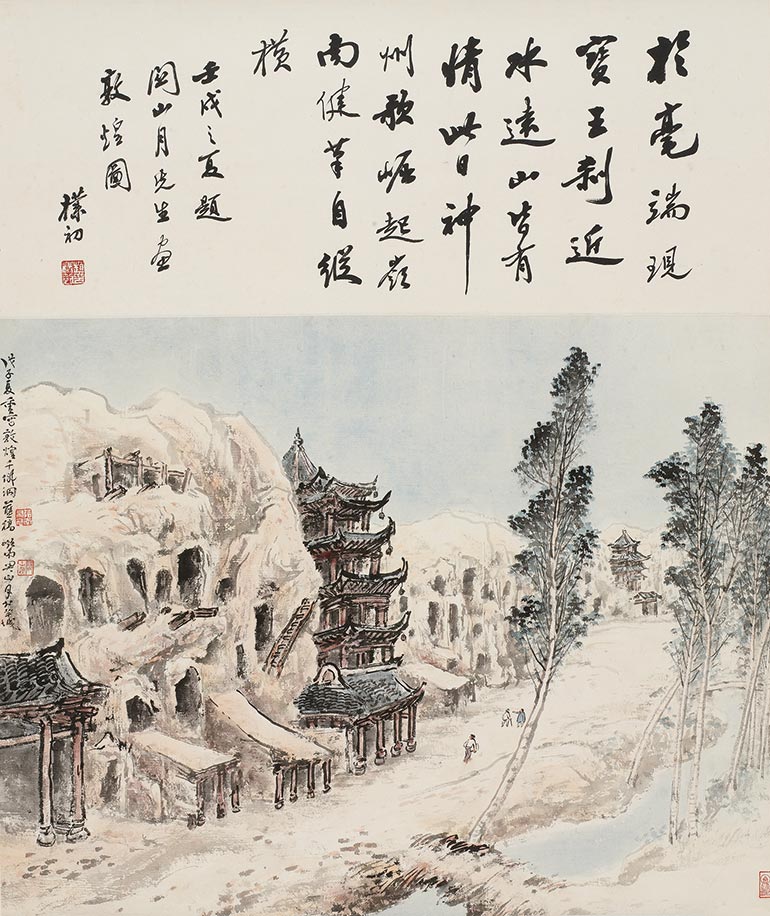 於毫端現
寶王刹近
水遠山皆有
情此日神
州歌崛起嶺
南健筆自縱
橫
壬戌之夏題
関山月先生畫
敦煌圖
樸初
戊子夏重寫敦煌千佛洞舊稿 関山月